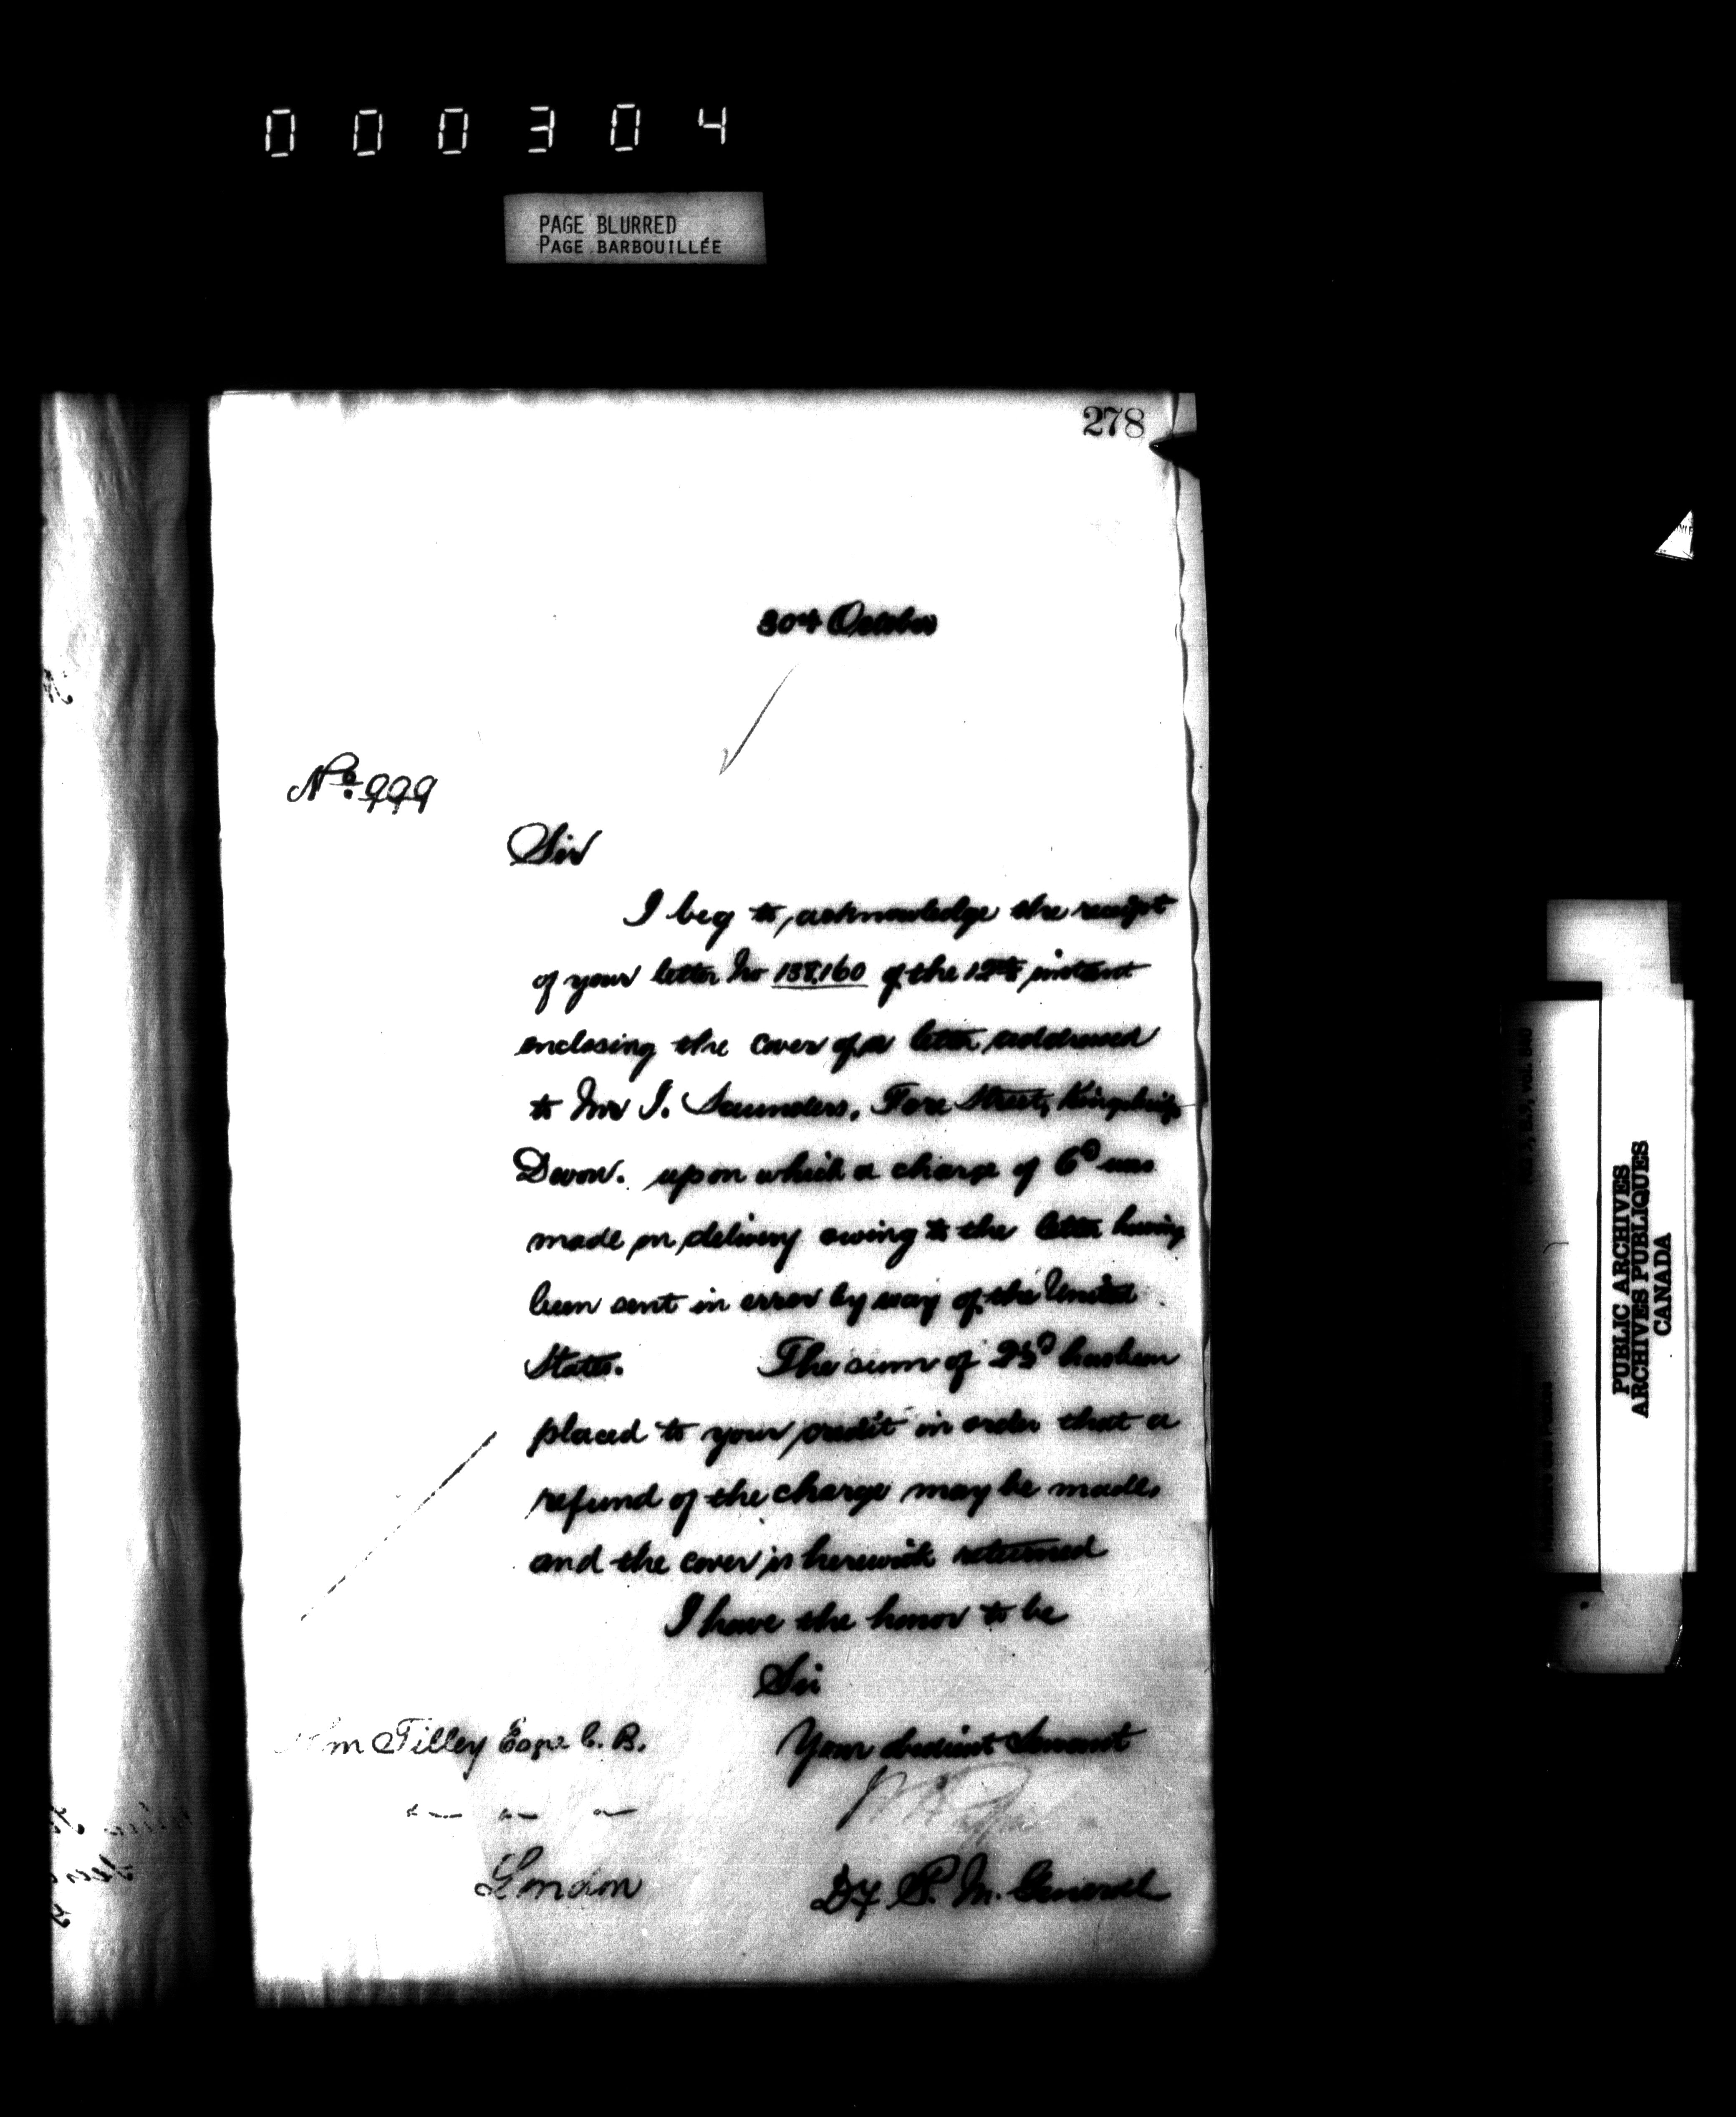 000304
PAGE BLURRED
PAGE BARBOUILLÉE
278
30th October
No. 999
Sir
I beg to acknowledge the receipt
of your letter No 138,160 of the 12th instant
enclosing the cover of a letter addressed
to Mr J. Saunders, Fore Street, Kingsbridge
Devon. upon which a charge of 6d was
made on delivery owing to the letter having
been sent in error by way of the United
States. The sum of 2½d has been
placed to your credit in order that a
refund of the charge may be made,
and the cover is herewith returned
I have the honor to be
Sir
Your obedient Servant
Tilley Esqre C. B.
London
Dy. P. M. General
PUBLIC ARCHIVES
ARCHIVES PUBLIQUES
CANADA